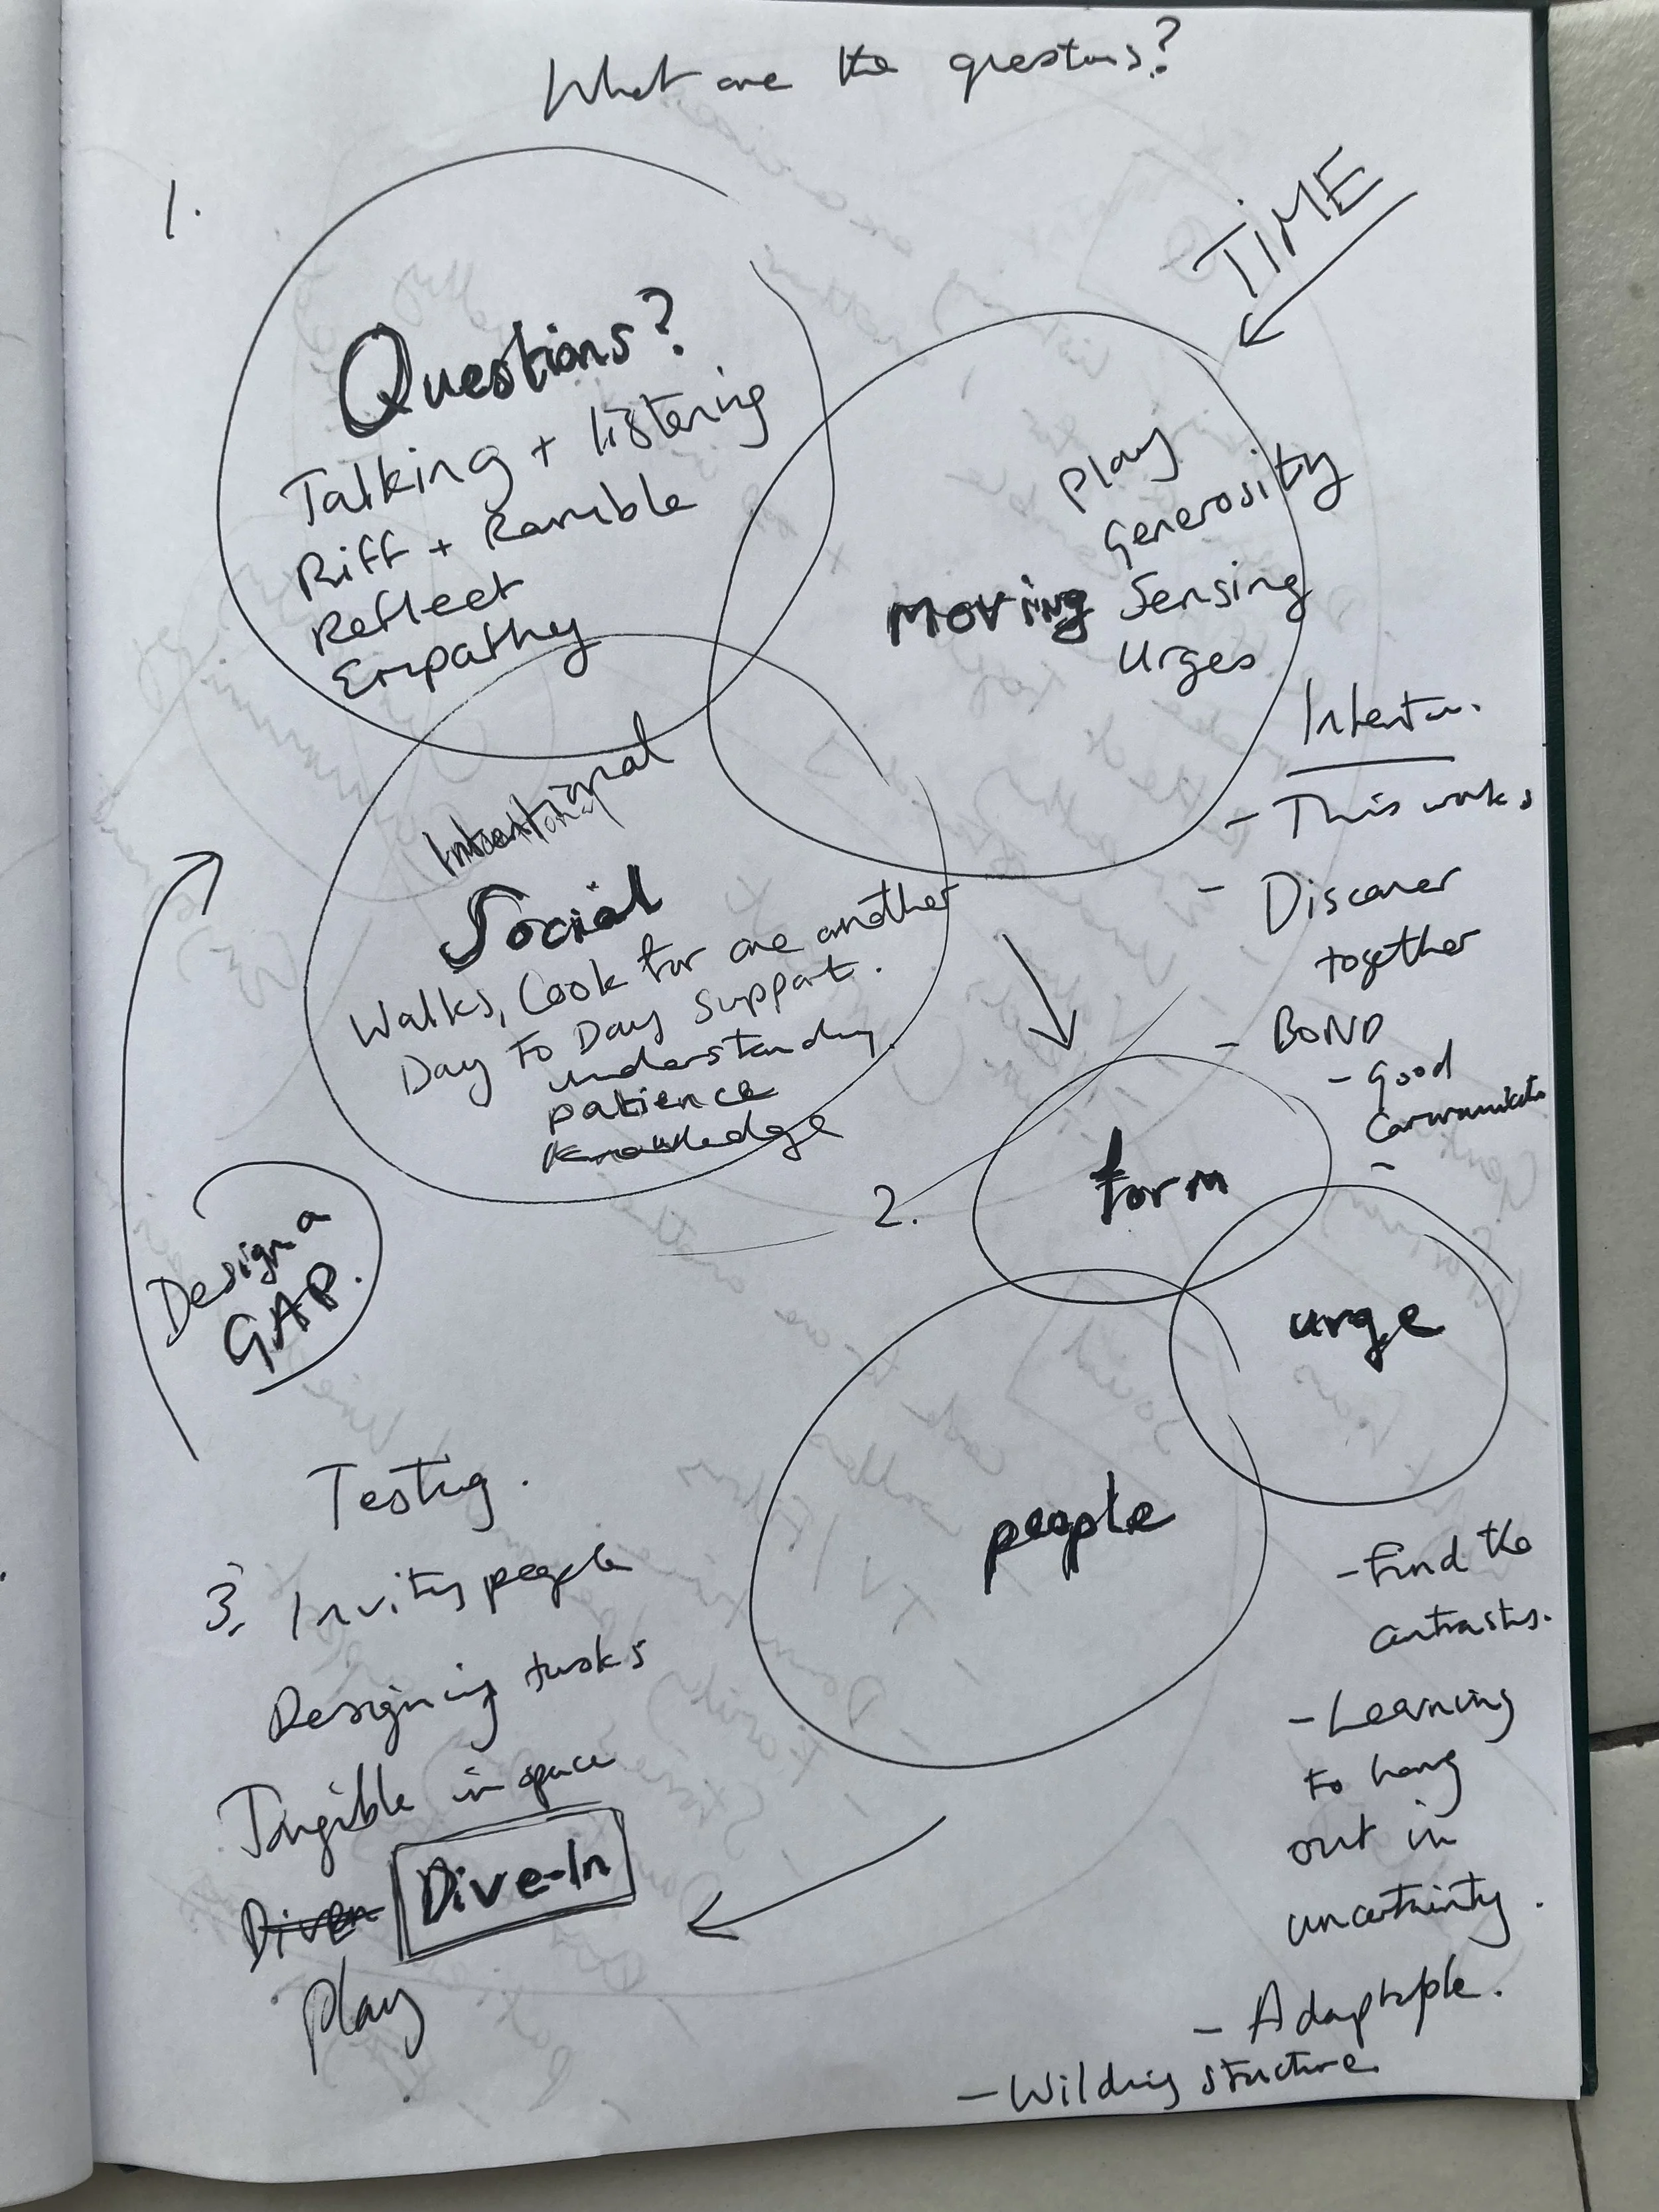 What are the questions?
1.
TIME
Questions?
Talking + listening
Riff + Ramble
Reflect
Empathy
Play
Generosity
Moving Sensing
Urges
Intention.
- This works
- Discover
together
- BOND
- Good
-
Intentional
Social
Walks, Cook for one another
Day to Day Support.
understanding
patience
knowledge
Design a
GAP.
2.
form
urge
people
Testing.
3. Inviting people
Designing tasks
Tangible in space
Diven Dive-In
Play
- Find the
contrasts.
- Learning
to hang
out in
uncertainty.
- Adaptable.
- Wilding structure